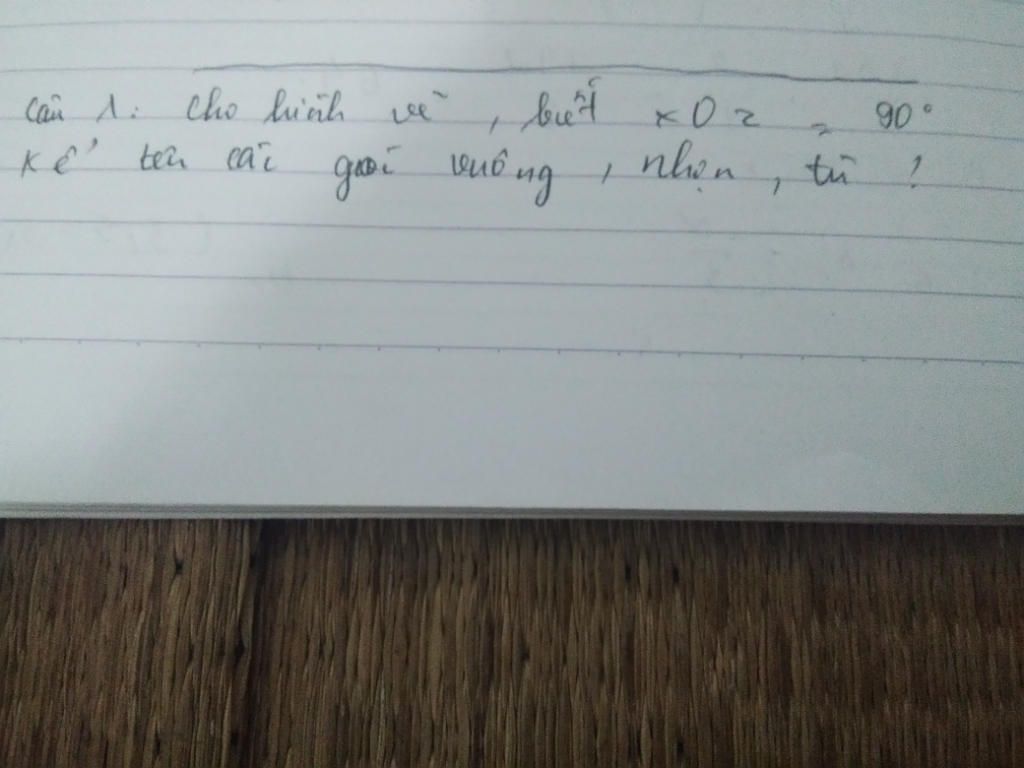 Câu 1: Cho hình vẽ, biết xOz = 90°
Kể tên các góc vuông, nhọn, tù !